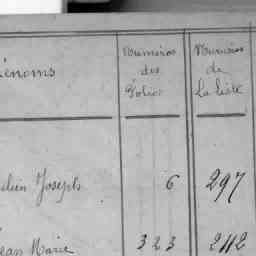 Numéros
des
Folios
Numéros
de
La Liste
énoms
Joseph 6 297
Jean Marie 323 2112